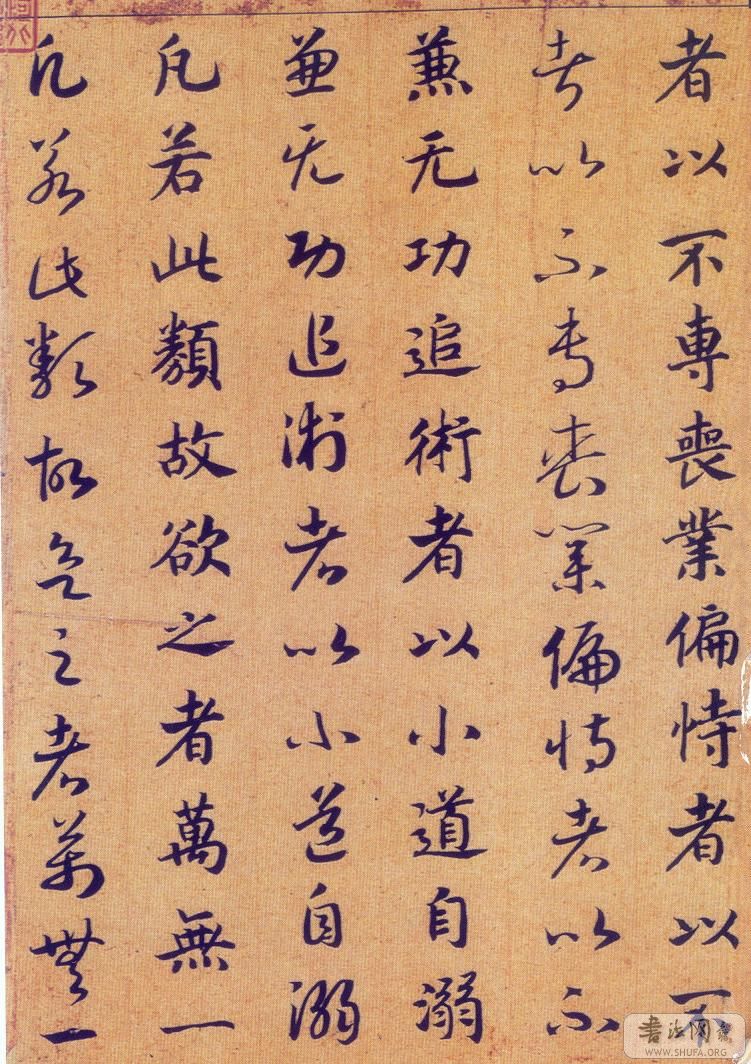 者以不専喪業偏恃者以不
者以不専喪業偏恃者以不
兼无功追術者以小道自溺
兼无功追術者以小道自溺
凡若此類故欲之者萬無一
凡若此類故欲之者萬無一
書法网
WWW.SHUFA.ORG